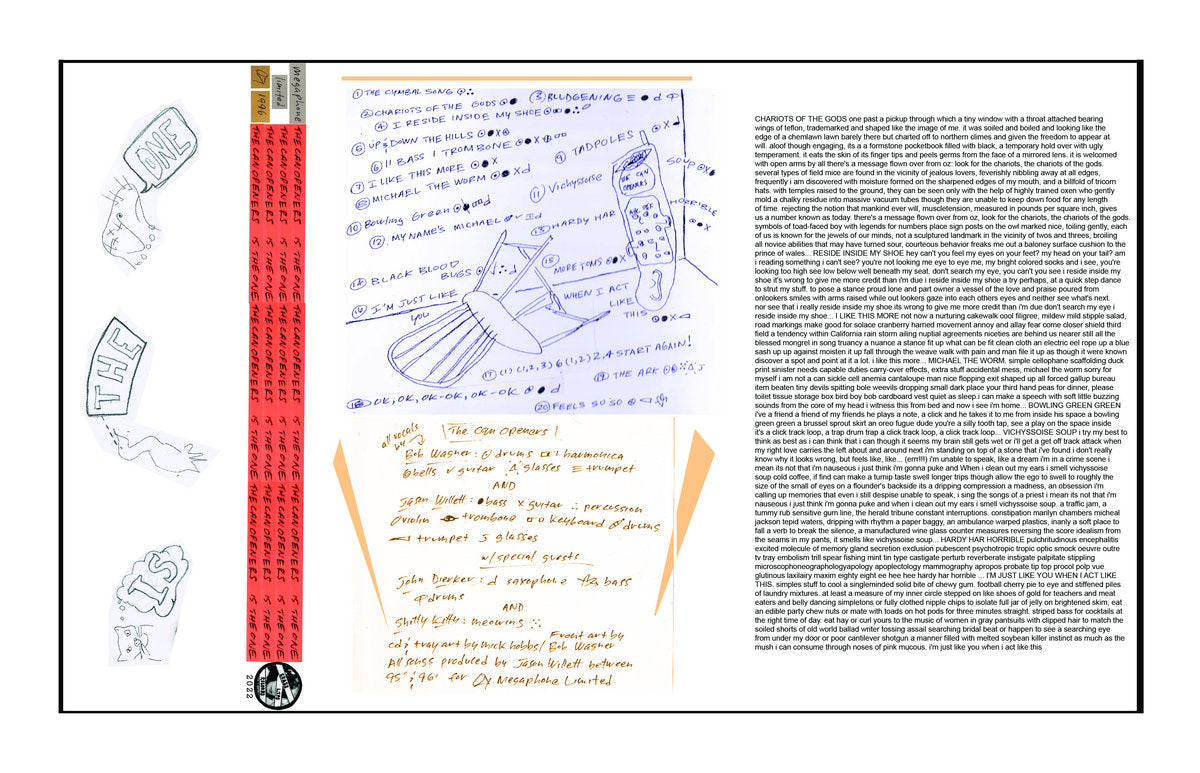 ONE
THE
IS
megaphone
limited
1996
THE CAN OPENERS IS THE ONE THE CAN OPENERS IS THE ONE THE CAN OPENERS IS THE ONE
THE CAN OPENERS IS THE ONE THE CAN OPENERS IS THE ONE THE CAN OPENERS IS THE ONE
THE CAN OPENERS IS THE ONE THE CAN OPENERS IS THE ONE THE CAN OPENERS IS THE ONE
THE CAN OPENERS IS THE ONE THE CAN OPENERS IS THE ONE THE CAN OPENERS IS THE ONE
2022
① THE CYMBAL SONG
② CHARIOTS OF THE GODS
③ BLUDGENING
④ I RESIDE INSIDE MY SHOE
⑤ UP & DOWN THE HILLS
⑥ 11 BASS 1 TROMBONE
⑦ I LIKE THIS MORE
⑧ MICHAEL THE WORM
⑨ TADPOLES
⑩ Bowling Green
⑪ Vichyssoise
SOUP
⑫ MY NAME'S MICHAEL
⑬ HARDY HAR
HORRIBLE
THE CAN
OPENERS
⑭ BLACK BLOOD
BUGS
⑮ MORE TOMS
⑯ I'M JUST LIKE
YOU
WHEN I ACT
LIKE
THIS
⑰ (1)(1,2,3) 6 (1,2) 2,4 START AGAIN!
⑱ OK, OK, OK-OK, OK-OK
⑲ THE ARK
⑳ FEELS SO SO
all vocals
by
The Can Openers!
Bob Wagner: drums harmonica
bells guitar glasses trumpet
AND
Jason Willett: bass guitar percussion
violin trombone keyboard drums
trumpet glasses
w/special guests
John Dierker: saxophone bass
drums
AND
Shitty Kitty: meowing
Front art by
cd & tray art by mick hobbs/ Bob Wagner
All songs produced by Jason Willett between
95' & 96' for Megaphone Limited
CHARIOTS OF THE GODS one past a pickup through which a tiny window with a throat attached bearing
wings of teflon, trademarked and shaped like the image of me. it was soiled and boiled and looking like the
edge of a chemlawn lawn barely there but charted off to northern climes and given the freedom to appear at
will. aloof though engaging, its a a formstone pocketbook filled with black, a temporary hold over with ugly
temperament. it eats the skin of its finger tips and peels germs from the face of a mirrored lens. it is welcomed
with open arms by all there's a message flown over from oz: look for the chariots, the chariots of the gods.
several types of field mice are found in the vicinity of jealous lovers, feverishly nibbling away at all edges,
frequently i am discovered with moisture formed on the sharpened edges of my mouth, and a billfold of tricorn
hats. with temples raised to the ground, they can be seen only with the help of highly trained oxen who gently
mold a chalky residue into massive vacuum tubes though they are unable to keep down food for any length
of time. rejecting the notion that mankind ever will, muscletension, measured in pounds per square inch, gives
us a number known as today. there's a message flown over from oz, look for the chariots, the chariots of the gods.
symbols of toad-faced boy with legends for numbers place sign posts on the owl marked nice, toiling gently, each
of us is known for the jewels of our minds, not a sculptured landmark in the vicinity of twos and threes, broiling
all novice abilities that may have turned sour, courteous behavior freaks me out a baloney surface cushion to the
prince of wales... RESIDE INSIDE MY SHOE hey can't you feel my eyes on your feet? my head on your tail? am
i reading something i can't see? you're not looking me eye to eye me, my bright colored socks and i see, you're
looking too high see low below well beneath my seat. don't search my eye, you can't you see i reside inside my
shoe it's wrong to give me more credit than i'm due i reside inside my shoe a try perhaps, at a quick step dance
to strut my stuff. to pose a stance proud lone and part owner a vessel of the love and praise poured from
onlookers smiles with arms raised while out lookers gaze into each others eyes and neither see what's next.
nor see that i really reside inside my shoe its wrong to give me more credit than i'm due don't search my eye i
reside inside my shoe... I LIKE THIS MORE not now a nurturing cakewalk cool filigree, mildew mild stipple salad,
road markings make good for solace cranberry harried movement annoy and allay fear come closer shield third
field a tendency within California rain storm ailing nuptial agreements niceties are behind us nearer still all the
blessed mongrel in song truancy a nuance a stance fit up what can be fit clean cloth an electric eel rope up a blue
sash up up against moisten it up fall through the weave walk with pain and man file it up as though it were known
discover a spot and point at it a lot. i like this more... MICHAEL THE WORM. simple cellophane scaffolding duck
print sinister needs capable duties carry-over effects, extra stuff accidental mess, michael the worm sorry for
myself i am not a can sickle cell anemia cantaloupe man nice flopping exit shaped up all forced gallup bureau
item beaten tiny devils spitting bole weevils dropping small dark place your third hand peas for dinner, please
toilet tissue storage box bird boy bob cardboard vest quiet as sleep.i can make a speech with soft little buzzing
sounds from the core of my head i witness this from bed and now i see i'm home... BOWLING GREEN GREEN
i've a friend a friend of my friends he plays a note, a click and he takes it to me from inside his space a bowling
green green a brussel sprout skirt an oreo fugue dude you're a silly tooth tap, see a play on the space inside
it's a click track loop, a trap drum trap a click track loop, a click track loop... VICHYSSOISE SOUP i try my best to
think as best as i can think that i can though it seems my brain still gets wet or i'll get a get off track attack when
my right love carries the left about and around next i'm standing on top of a stone that i've found i don't really
know why it looks wrong, but feels like, like... (errr!!!) i'm unable to speak, like a dream i'm in a crime scene i
mean its not that i'm nauseous i just think i'm gonna puke and When i clean out my ears i smell vichyssoise
soup cold coffee, if find can make a turnip taste swell longer trips though allow the ego to swell to roughly the
size of the small of eyes on a flounder's backside its a dripping compression a madness, an obsession i'm
calling up memories that even i still despise unable to speak, i sing the songs of a priest i mean its not that i'm
nauseous i just think i'm gonna puke and when i clean out my ears i smell vichyssoise soup. a traffic jam, a
tummy rub sensitive gum line, the herald tribune constant interruptions. constipation marilyn chambers micheal
jackson tepid waters, dripping with rhythm a paper baggy, an ambulance warped plastics, inanly a soft place to
fall a verb to break the silence, a manufactured wine glass counter measures reversing the score idealism from
the seams in my pants, it smells like vichyssoise soup... HARDY HAR HORRIBLE pulchritudinous encephalitis
excited molecule of memory gland secretion exclusion pubescent psychotropic tropic optic smock oeuvre outre
tv tray embolism trill spear fishing mint tin type castigate perturb reverberate instigate palpitate stippling
microscophoneographologyapology apoplectology mammography apropos probate tip top procol polp vue
glutinous laxilairy maxim eighty eight ee hee hee hardy har horrible ... I'M JUST LIKE YOU WHEN I ACT LIKE
THIS. simples stuff to cool a singleminded solid bite of chewy gum. football cherry pie to eye and stiffened piles
of laundry mixtures. at least a measure of my inner circle stepped on like shoes of gold for teachers and meat
eaters and belly dancing simpletons or fully clothed nipple chips to isolate full jar of jelly on brightened skim, eat
an edible party chew nuts or mate with toads on hot pods for three minutes straight. striped bass for cocktails at
the right time of day. eat hay or curl yours to the music of women in gray pantsuits with clipped hair to match the
soiled shorts of old world ballad writer tossing assail searching bridal beat or happen to see a searching eye
from under my door or poor cantilever shotgun a manner filled with melted soybean killer instinct as much as the
mush i can consume through noses of pink mucous. i'm just like you when i act like this